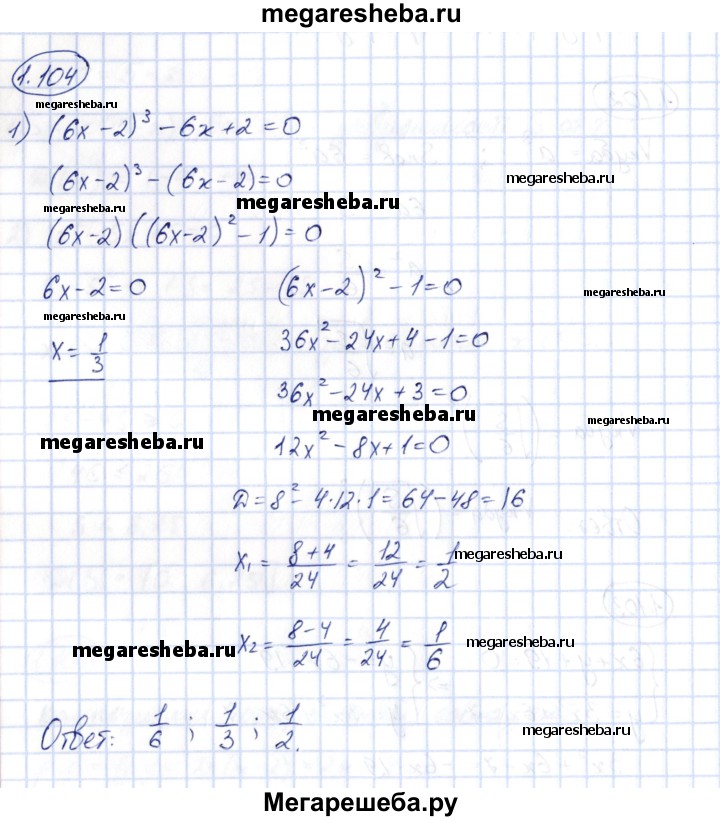 megaresheba.ru
1.104
megaresheba.ru
1) (6x-2)³-6x+2=0
(6x-2)³-(6x-2)=0 megaresheba.ru
megaresheba.ru megaresheba.ru
(6x-2)((6x-2)²-1)=0
6x-2=0 (6x-2)²-1=0 megaresheba.ru
megaresheba.ru
x=1/3 36x²-24x+4-1=0
36x²-24x+3=0
megaresheba.ru megaresheba.ru
megaresheba.ru 12x²-8x+1=0
Д=8²-4·12·1=64-48=16
x₁=8+4/24=12/24=1/2 megaresheba.ru
megaresheba.ru x₂=8-4/24=4/24=1/6 megaresheba.ru
Ответ: 1/6; 1/3; 1/2. megaresheba.ru
Мегарешеба.ру